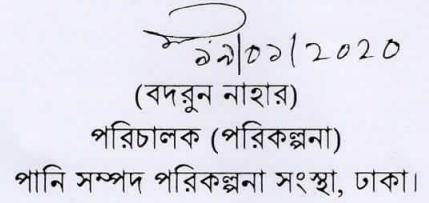 ১৯/০১/2020
(বদরুন নাহার)
পরিচালক (পরিকল্পনা)
পানি সম্পদ পরিকল্পনা সংস্থা, ঢাকা।